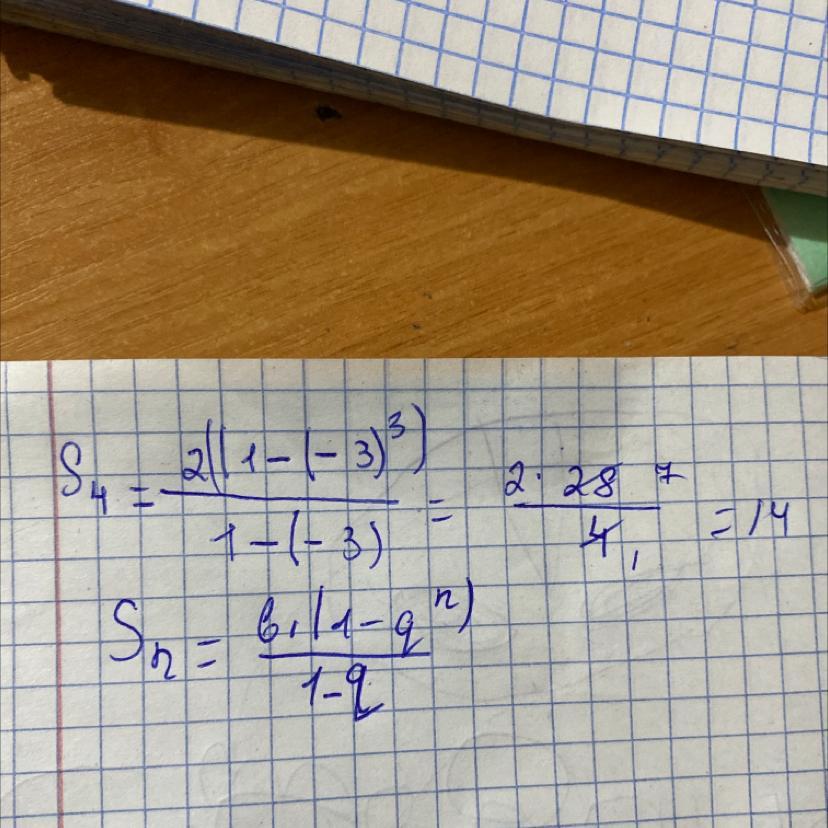 S₄ = 2((1-(-3)³) / 1-(-3) = 2·28 7 / 4 1 = 14
Sₙ = b₁(1-qⁿ) / 1-q